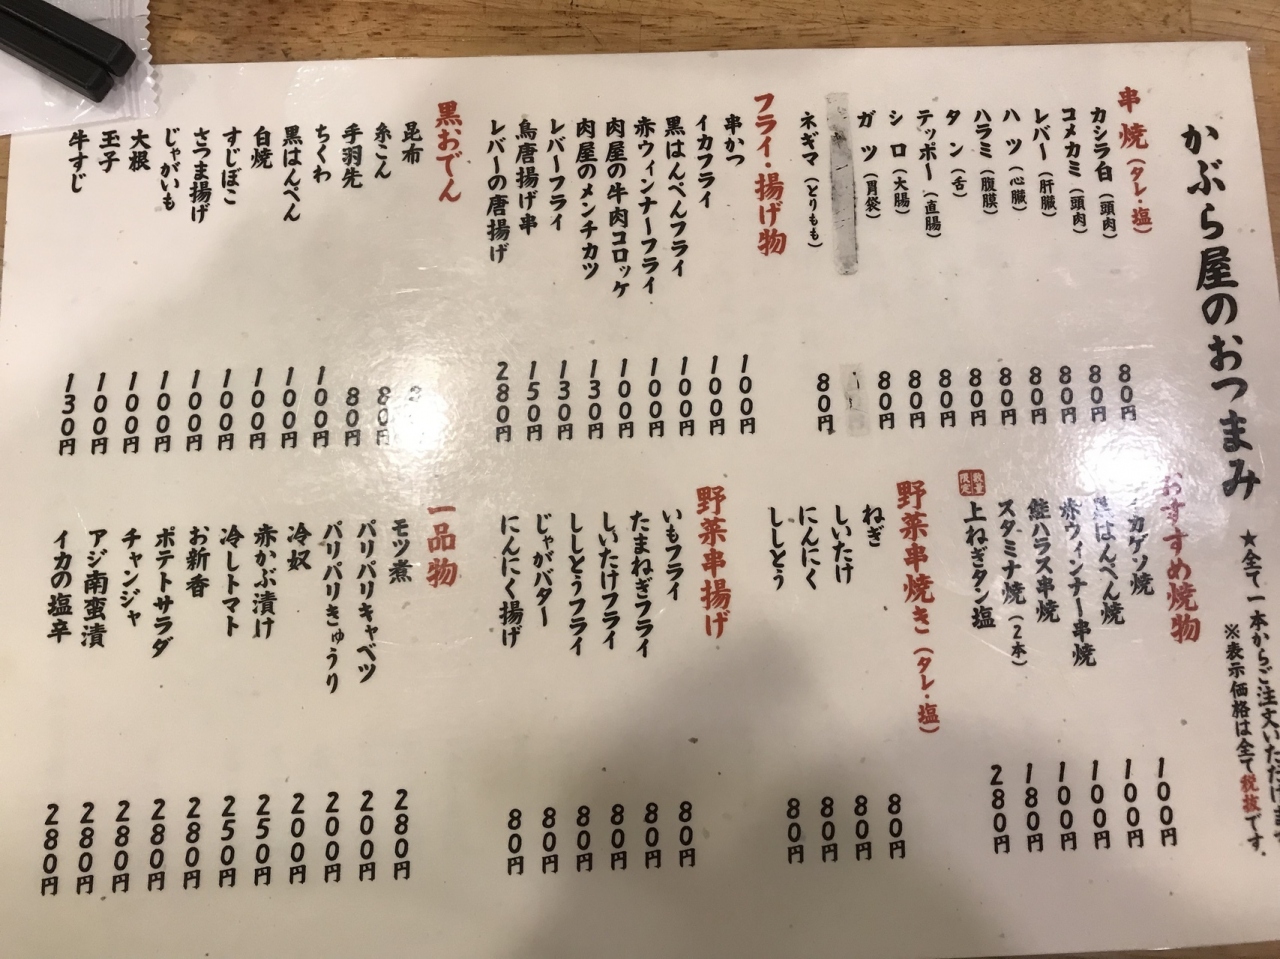 かぶら屋のおつまみ
★全て一本からご注文いただけます
※表示価格は全て税抜です。
串焼(タレ・塩)
カシラ白(頭肉) 80円
コメカミ(頭肉) 80円
レバー(肝臓) 80円
ハツ(心臓) 80円
ハラミ(腹膜) 80円
タン(舌) 80円
テッポー(直腸) 80円
シロ(大腸) 80円
ガツ(胃袋) 80円
ネギマ(とりもも) 80円
フライ・揚げ物
串かつ 100円
イカフライ 100円
黒はんぺんフライ 100円
赤ウィンナーフライ 100円
肉屋の牛肉コロッケ 100円
肉屋のメンチカツ 130円
レバーフライ 130円
鳥唐揚げ串 150円
レバーの唐揚げ 280円
黒おでん
昆布
糸こん 80円
手羽先 80円
ちくわ 100円
黒はんぺん 100円
白焼 100円
すじぼこ 100円
さつま揚げ 100円
じゃがいも 100円
大根 100円
玉子 100円
牛すじ 130円
おすすめ焼物
イカゲソ焼 100円
黒はんぺん焼 100円
赤ウィンナー串焼 100円
鮭ハラス串焼 100円
スタミナ焼(2本) 180円
数量限定 上ねぎタン塩 280円
野菜串焼き(タレ・塩)
ねぎ 80円
しいたけ 80円
にんにく 80円
ししとう 80円
野菜串揚げ
いもフライ 80円
たまねぎフライ 80円
しいたけフライ 80円
ししとうフライ 80円
じゃがバター 80円
にんにく揚げ 80円
一品物
モツ煮 280円
パリパリキャベツ 200円
パリパリきゅうり 200円
冷奴 200円
赤かぶ漬け 250円
冷しトマト 250円
お新香 280円
ポテトサラダ 280円
チャンジャ 280円
アジ南蛮漬 280円
イカの塩辛 280円